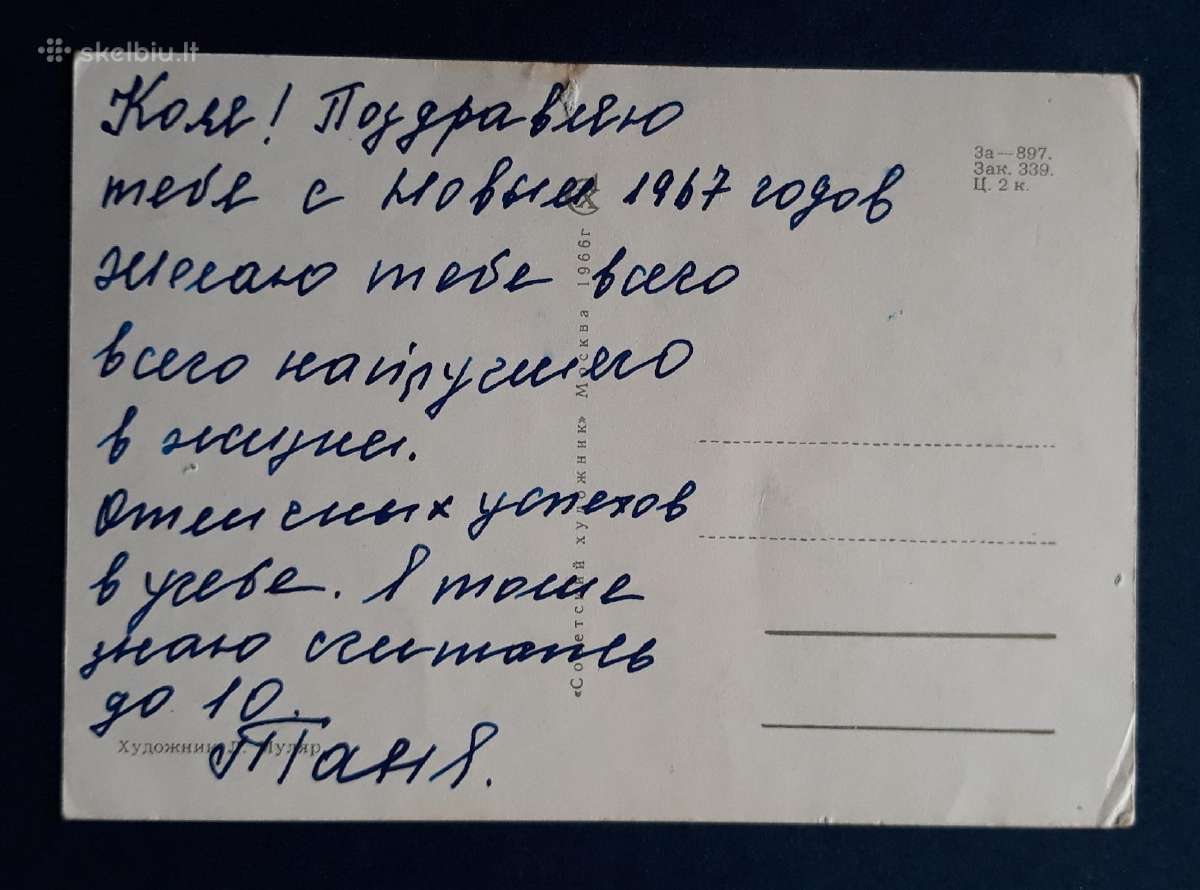 skelbiu.lt
Коля! Поздравляю
тебя с Новым 1967 годов
Желаю тебе всего
всего найлучшего
в жизни.
Отличных успехов
в учебе. Я тоже
знаю считать
до 10.
Таня.
За—897.
Зак. 339.
Ц. 2 к.
«Советский художник» Москва 1966г
Художник Л. Муляр